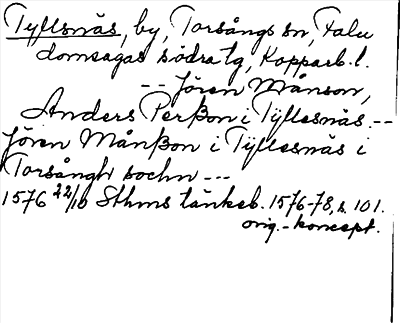 Tyllsnäs, by, Torsångs sn, Falu
domsagas södra tg, Kopparb. l.
-- Jören Månson,
Anders Perßon i Tÿllesnäs --
Jören Månßon i Tÿllesnäs i
Torsångh sochn ---
1576 22/10 Sthms tänkeb. 1576-78, s. 101.
orig. - koncept.